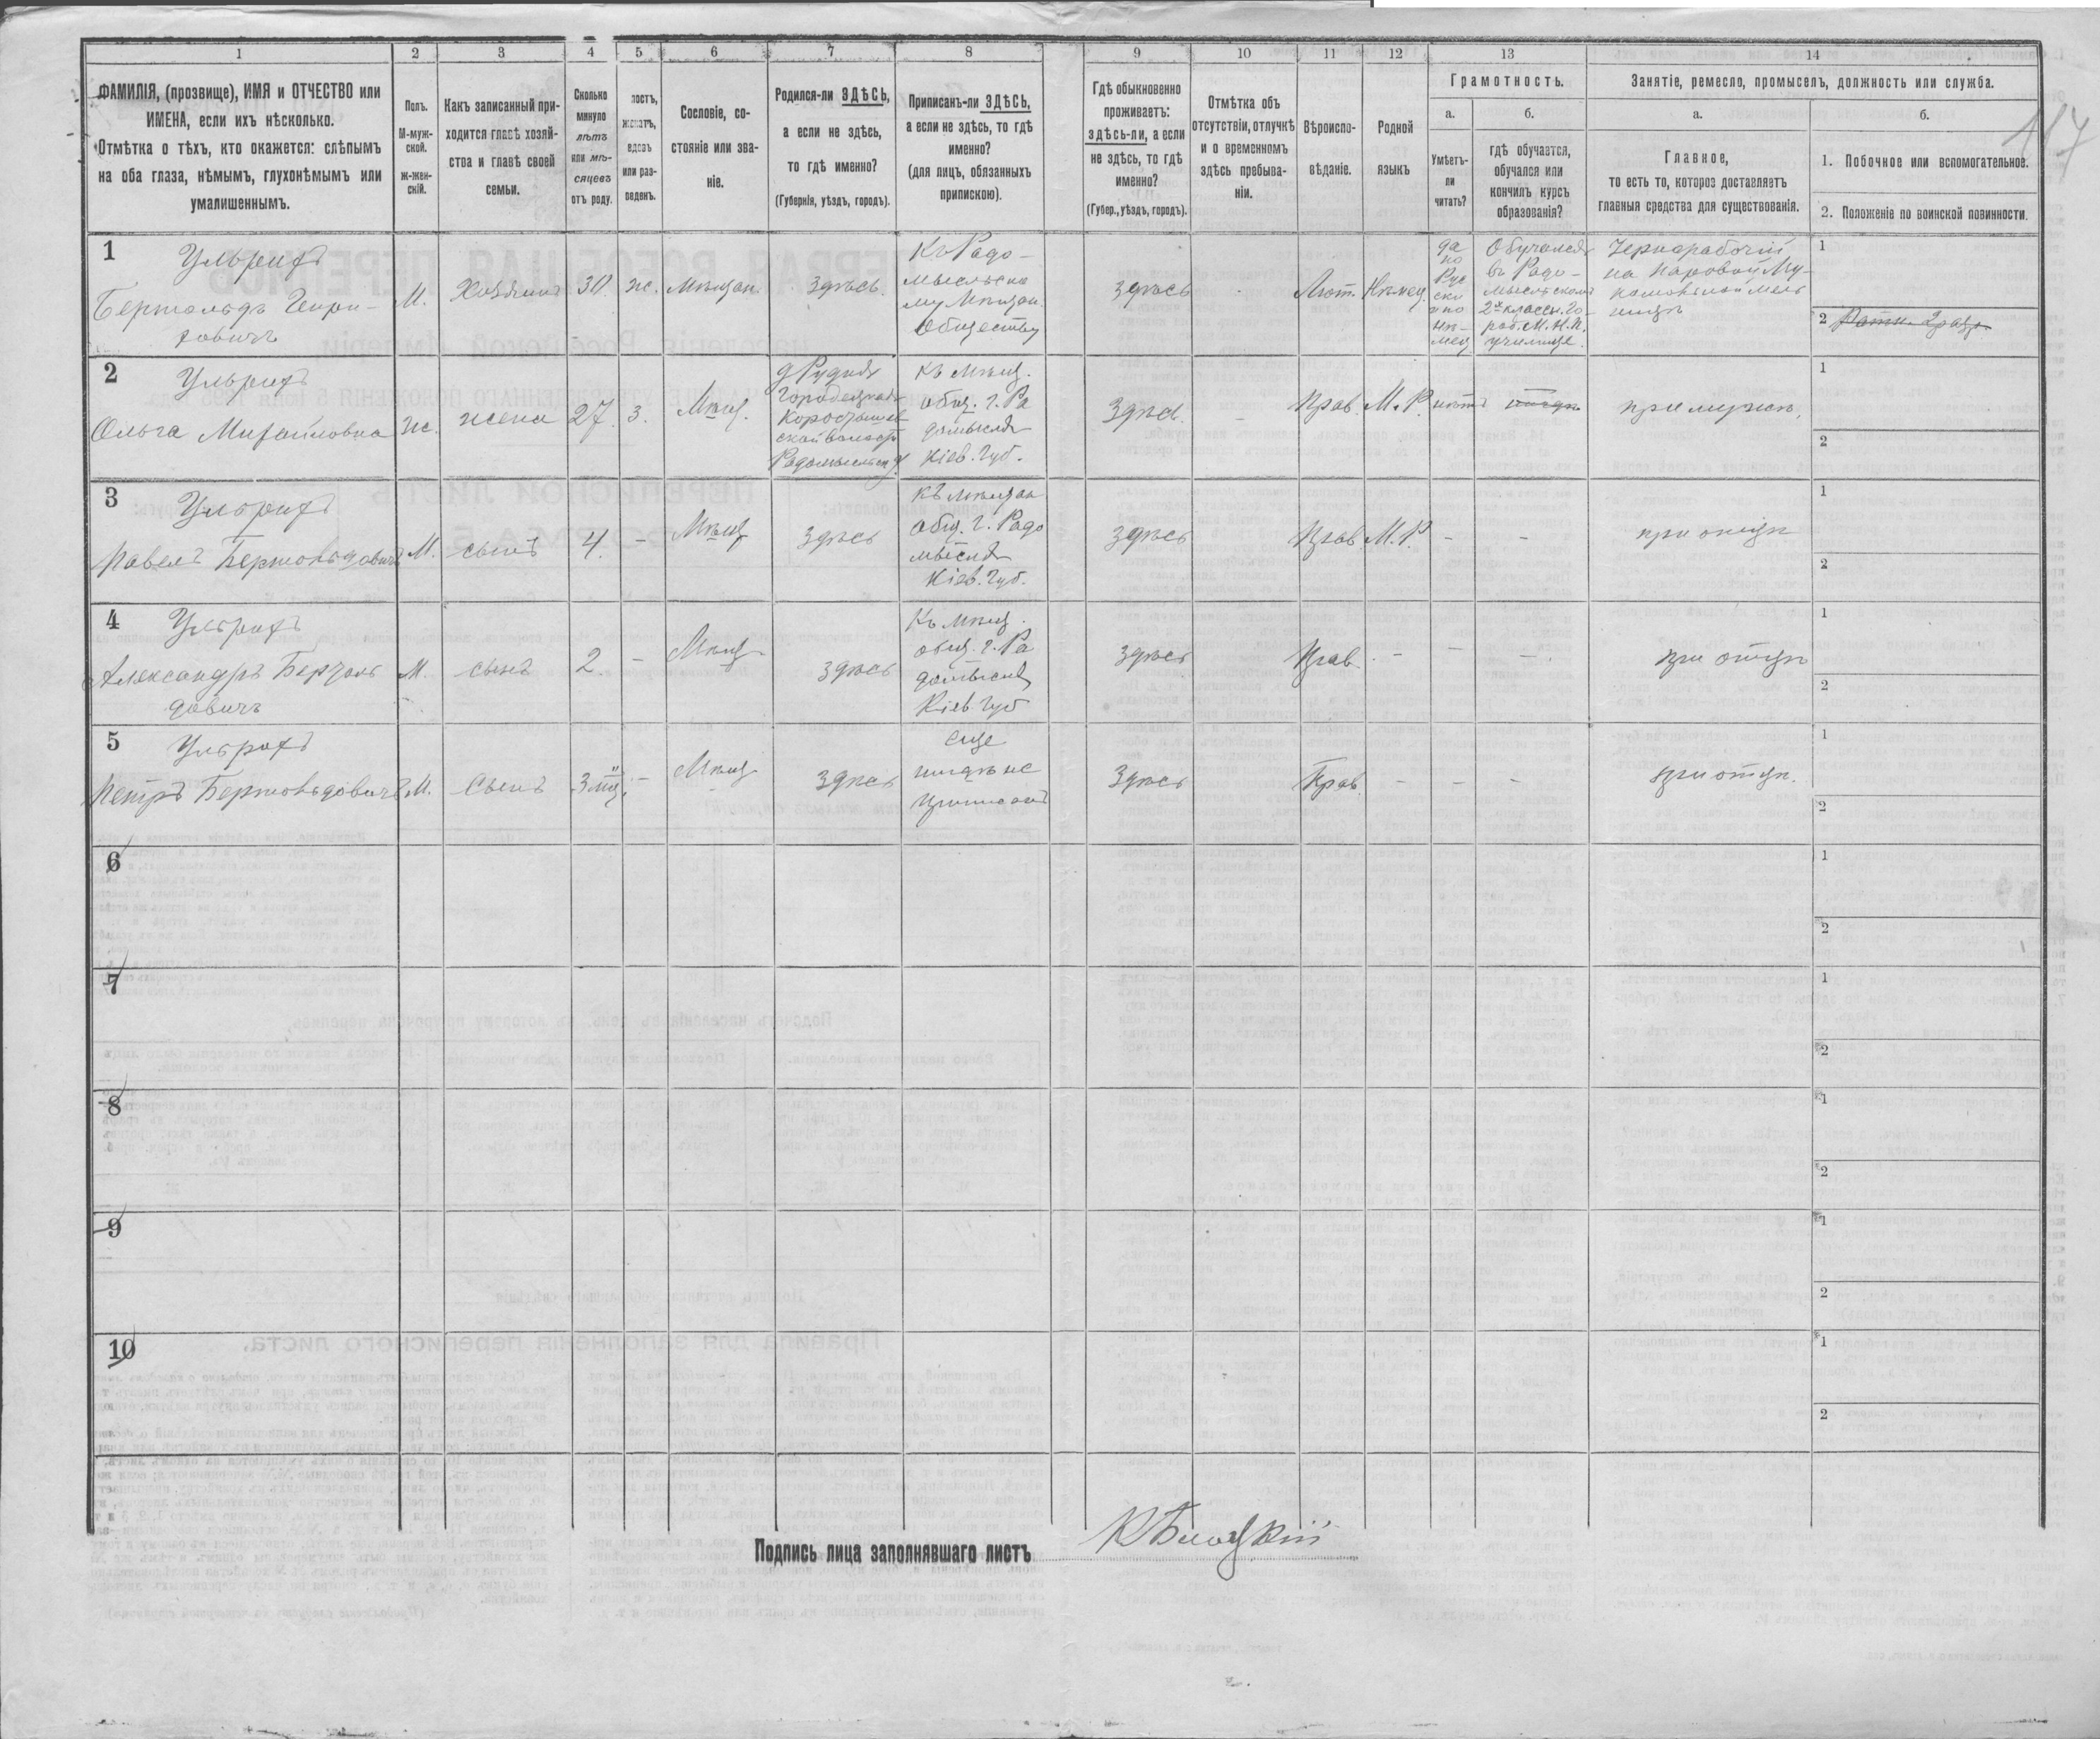 1
2
3
4
5
6
7
8
9
10
11
12
13
14
ФАМИЛІЯ, (прозвище), ИМЯ и ОТЧЕСТВО или
ИМЕНА, если ихъ нѣсколько.
Отмѣтка о тѣхъ, кто окажется: слѣпымъ
на оба глаза, нѣмымъ, глухонѣмымъ или
умалишеннымъ.
Полъ.
М-муж-
ской.
Ж-жен-
скій.
Какъ записанный при-
ходится главѣ хозяй-
ства и главѣ своей
семьи.
Сколько
минуло
лѣтъ
или мѣ-
сяцевъ
отъ роду.
лостъ,
женатъ,
вдовъ
или раз-
веденъ.
Сословіе, со-
стояніе или зва-
ніе.
Родился-ли ЗДѢСЬ,
а если не здѣсь,
то гдѣ именно?
(Губернія, уѣздъ, городъ).
Приписанъ-ли ЗДѢСЬ,
а если не здѣсь, то гдѣ
именно?
(для лицъ, обязанныхъ
припискою).
Гдѣ обыкновенно
проживаетъ:
здѣсь-ли, а если
не здѣсь, то гдѣ
именно?
(Губер., уѣздъ, городъ).
Отмѣтка объ
отсутствіи, отлучкѣ
и о временномъ
здѣсь пребыва-
ніи.
Вѣроиспо-
вѣданіе.
Родной
языкъ
Грамотность.
а.
Умѣетъ-
ли
читать?
б.
гдѣ обучается,
обучался или
кончилъ курсъ
образованія?
Занятіе, ремесло, промыселъ, должность или служба.
а.
Главное,
то есть то, которое доставляетъ
главныя средства для существованія.
б.
1. Побочное или вспомогательное.
2. Положеніе по воинской повинности.
117
1
Ульрихъ
Бертольдъ Генри-
ховичъ
М.
Хозяинъ
30
ж.
Мѣщан.
Здѣсь.
Къ Радо-
мысльско
му Мѣщан.
Обществу
Здѣсь
Лют.
Нѣмец.
да
по
Рус
ски
и по
Нѣ-
мец
Обучался
въ Радо-
мысльскомъ
2х классн. Го-
род. М. Н. П.
училище.
Чернорабочій
на паровой Му-
комольной мель
ницѣ
1
2 Ратн. 2 разр.
2
Ульрихъ
Ольга Михайловна
Ж.
жена
27
З.
Мѣщ.
д Рудня
Городецкая
Коростышев
ской волости
Радомысльск у.
Къ мѣщ.
общ. г. Ра
домысля
Кіев. Губ.
Здѣсь
Прав.
М. Р.
нѣтъ
при мужѣ.
1
2
3
Ульрихъ
Павелъ Бертольдовичъ
М.
сынъ
4.
-
Мѣщ
Здѣсь
Къ мѣщан
общ. г. Радо
мысля
Кіев. Губ.
Здѣсь
Прав.
М. Р.
-
-
при отцѣ
1
2
4
Ульрихъ
Александръ Бертоль
довичъ
М.
сынъ
2
-
Мѣщ
здѣсь
Къ мѣщ.
общ. г. Ра
домысля
Кіев. Губ
Здѣсь
Прав.
-
-
-
при отцѣ
1
2
5
Ульрихъ
Петръ Бертольдовичъ
М.
Сынъ
3 мц.
-
Мѣщ
Здѣсь
еще
нигдѣ не
приписанъ
Здѣсь
Прав.
-
-
-
при отцѣ.
1
2
6
1
2
7
1
2
8
1
2
9
1
2
10
1
2
Подпись лица заполнявшаго листъ